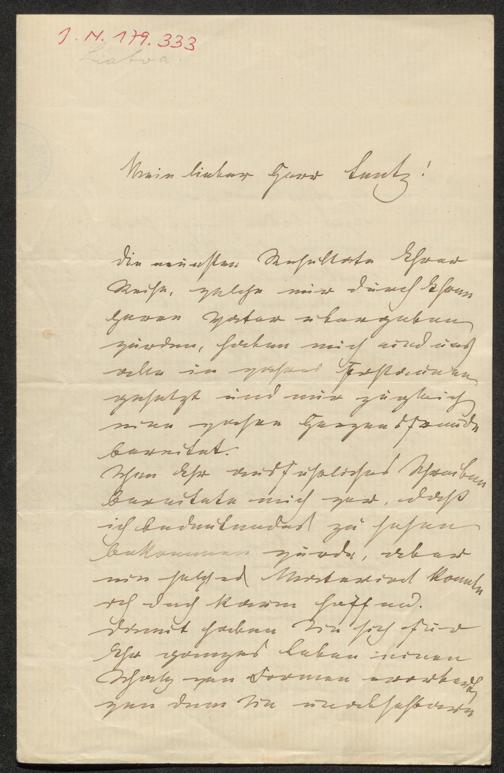 J. N. 179.333
Mein lieber Herr Lentz!
Die neuesten Resultate Ihrer
Reise, welche mir durch Ihren
Herrn Vater übergeben
wurden, haben mich und uns
alle in wahres Erstaunen
gesetzt und mir zugleich
eine wahre Herzensfreude
bereitet.
Schon Ihr ausführliches Schreiben
bereitete mich vor, dass
ich bedeutendes zu sehen
bekommen würde, aber
ein solches Material konnte
ich doch kaum hoffen.
Damit haben Sie sich für
Ihr ganzes Leben einen
Schatz von Formen erworben
von dem Sie unabsehbaren